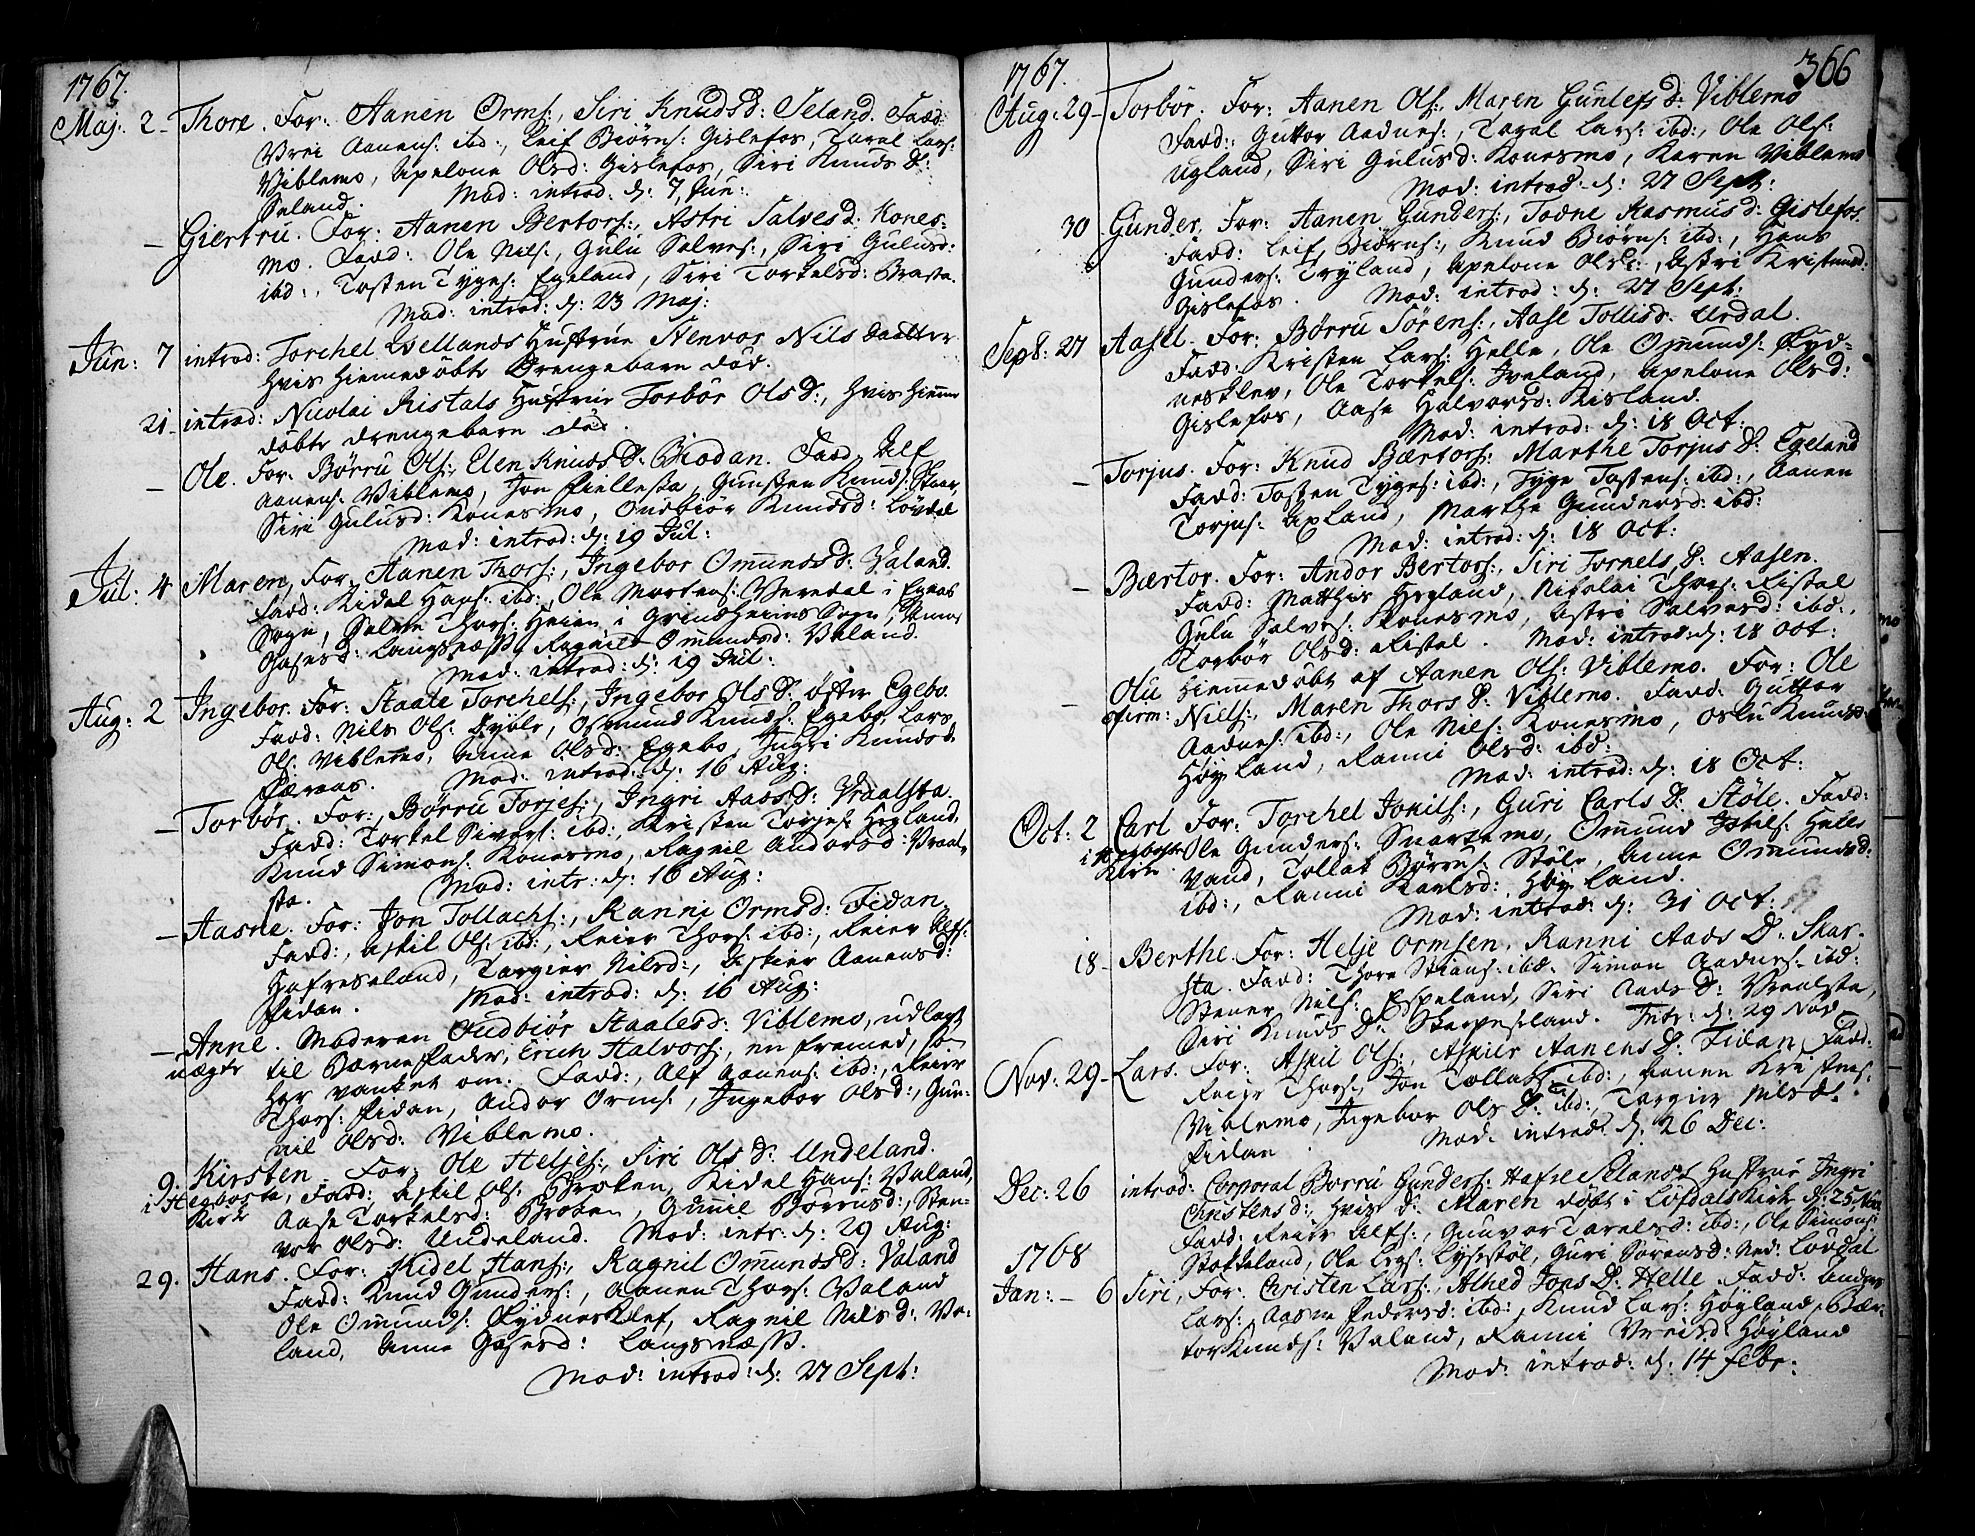 1767.
Maj. 2 - Thore. For: Aanen Orms:, Siri Knudsd: Seland. Fadd:
Vrei Aanens: ibd:, Leif Biörns: Gislefos, Tarel Lars:
Viblemo, Apelone Olsd: Gislefos, Siri Knuds D:
Seland. Mod: introd: d: 7, Jun:
- Giertru. For: Aanen Bertors:, Astri Salvesd: Kones-
mo. Fadd: Ole Nils:, Gulu Salves:, Siri Gulusd:
ibd:, Tosten Tyges: Egeland, Siri Torkelsd: Brasta.
Mod: introd: d: 23 Maj:
Jun: 7 introd: Torchel Hustrue Stenvor Nils daatter
hvis hiemedöbte Drengebarn död.
21 - introd: Nicolai Ristals Hustrue Torbör Ols D:, hvis hieme
döbte drengebarn död.
- Ole. For: Börru Ols:, Elen Knuds D: Biodan. Fadd: Alf
Aanens: Viblemo, Jon Fiellesta, Gunsten Knuds:
Siri Gulusd: Konesmo, Oudbiör Knudsd: Lövdal
Mod: introd: d: 19 Jul:
Jul: 4 Maren, For: Aanen Thors:, Ingebor Omunds D: Valand.
Fadd: Kidel Hans: ibd:, Ole Mortens: i
Sogn, Salve Thors: Heien i Grindheims Sogn,
Langenæss, Ragnile Omundsd: Valand.
Mod: introd: d: 19 Jul:
Aug: 2 Ingebor. For: Staale Torchels:, Ingebor Ols D: öster Egebo.
Fadd: Nils Ols:, Osmund Knuds: Egebo, Lars
Ols: Viblemo, Anne Olsd: Egebo, Ingri Knudsd:
Mod: introd: d: 16 Aug:
- Torbör. For: Börru Torjes:, Ingri Aads D: Vraalsta.
Fadd: Torkel Sivers: ibd:, Kristen Torjes: Hegland,
Knud Simons: Konesmo, Ragnil Andorsd: Vraal-
sta. Mod: intr: d: 16 Aug:
- Aasne. For: Jon Tollachs:, Ranni Ormsd: Fidan,
Fadd: Askil Ols: ibd:, Reier Thors: ibd:, Reier Alfs:
Hafreseland, Torgier Nilsd:, Askier Aanensd:
Fidan. Mod: introd: d: 16 Aug:
- Anne. Moderen Oudbiör Staalesd: Viblemo, udlagt
nægte til Barne Fader, Erich Halvors:, en fremed, so
her vanket om. Fadd:, Alf Aanens: ibd:, Reier
Thors: Fidan, Andor Orms:, Ingebor Olsd:, Gun-
nil Olsd: Viblemo.
9. Kirsten. For: Ole Heljes:, Siri Ols D: Undeland.
i Hegbosta, Fadd: Askil Ols: Broken, Kidel Hans: Valand,
Kirk Aase Torkelsd: Broken, Gunnil Börrusd:, Sten-
vor Olsd: Undeland. Mod: intr: d: 29 Aug:
29. Hans. For: Kidel Hans:, Ragnil Omunds D: Valand
Fadd: Knud Gunders:, Aanen Thors: Valand
Ole Omunds: Rydnesklef, Ragnil Nils D: Va-
land, Anne Langenæss.
Mod: introd: d: 27 Sept:
1767. 366
Aug: 29 - Torbör. For: Aanen Ols:, Maren Gunlefs D: Viblemo
Fadd: Guttor Aadnes:, Taral Lars: ibd:, Ole Ols:
Ugland, Siri Gulusd: Konesmo, Karen Viblemo
Mod: introd: d: 27 Sept:
30 Gunder. For: Aanen Gunders:, Todne Rasmus D: Gislefos.
Fadd: Leif Biörns:, Knud Biörns: ibd:, Hans
Gunders: Tryland, Apelone Olsd:, Astri Kristensd:
Gislefos. Mod: introd: d: 27 Sept:
Sept: 27 Aasel. For: Börru Sörens:, Aase Tollisd: Urdal.
Fadd: Kristen Lars: Helle, Ole Omunds: Ryd-
nesklev, Ole Torkels: Iveland, Apelone Olsd:
Gislefos, Aase Halvorsd: Kisland.
Mod: introd: d: 18 Oct:
- Torjus. For: Knud Bærtors: Marthe Torjus D: Egeland
Fadd: Tosten Tyges: ibd:, Tyge Tostens: ibd:, Aanen
Torjus: Apland, Marthe Gundersd: ibd:
Mod: introd: d: 18 Oct:
- Bærtor. For: Andor Bertors:, Siri Tornels D: Aasen.
Fadd: Matthis Hegland, Nikolai Thors: Ristal
Gulu Salves: Konesmo, Astri Salvesd: ibd:,
Torbör Olsd: Ristal. Mod: introd: d: 18 Oct:
- Olu hiemmedöbt af Aanen Ols: Viblemo. For: Ole
Niels:, Maren Thors D: Viblemo. Fadd: Guttor
Aadnes: ibd:, Ole Nils: Konesmo, Oslu Knudsd:
Höyland, Ranni Olsd: ibd:
Mod: introd: d: 18 Oct:
Oct: 2 Carl For: Torchel Jonils:, Guri Carls D: Stöle. Fadd:
i Hegbosta Ole Gunders: Snartemo, Omund Helle
Kirk Vand, Tollak Börrus: Stöle, Anne Omundsd:
ibd:, Ranni Karlsd: Höyland.
Mod: introd: d: 31 Oct:
18 - Berthe. For: Helje Ormsen, Ranni Aads D: Skar-
sta. Fadd: Thore Stians: ibd: Simon Aadnes: ibd:
Stener Nils: Espeland, Siri Aads D: Vraalsta,
Siri Knuds D: Skeypeseland. Intr: d: 29 Nov.
Nov: 29 - Lars. For: Askil Ols:, Askier Aanens D: Fidan Fadd:
Reier Thors:, Jon Tollaks: ibd:, Aanen Kristens:
Viblemo, Ingebor Ols D: ibd:, Torgier Nilsd:
Fidan. Mod: introd: d: 26 Dec:
Dec: 26 introd: Corporal Börru Gunders: Hafre Selands Hustrue Ingri
Christensd:, hvis D: Maren döbt i Löfdals Kirk d: 25, Nov
Fadd: Reier Alfs:, Gunvor Tarelsd: ibd:, Ole Simons:
Stokkeland, Ole Lysestöl, Guri Sörensd: Ned: Lövdal
1768
Jan: - 6 Siri, For: Christen Lars:, Alhed Jons D: Helle. Fadd: Anders
Lars:, Aasne Pedersd: ibd:, Knud Lars: Höyland, Bær-
tor Knuds: Valand, Ranni Vreisd: Höyland
Mod: introd: d: 14 Febr: